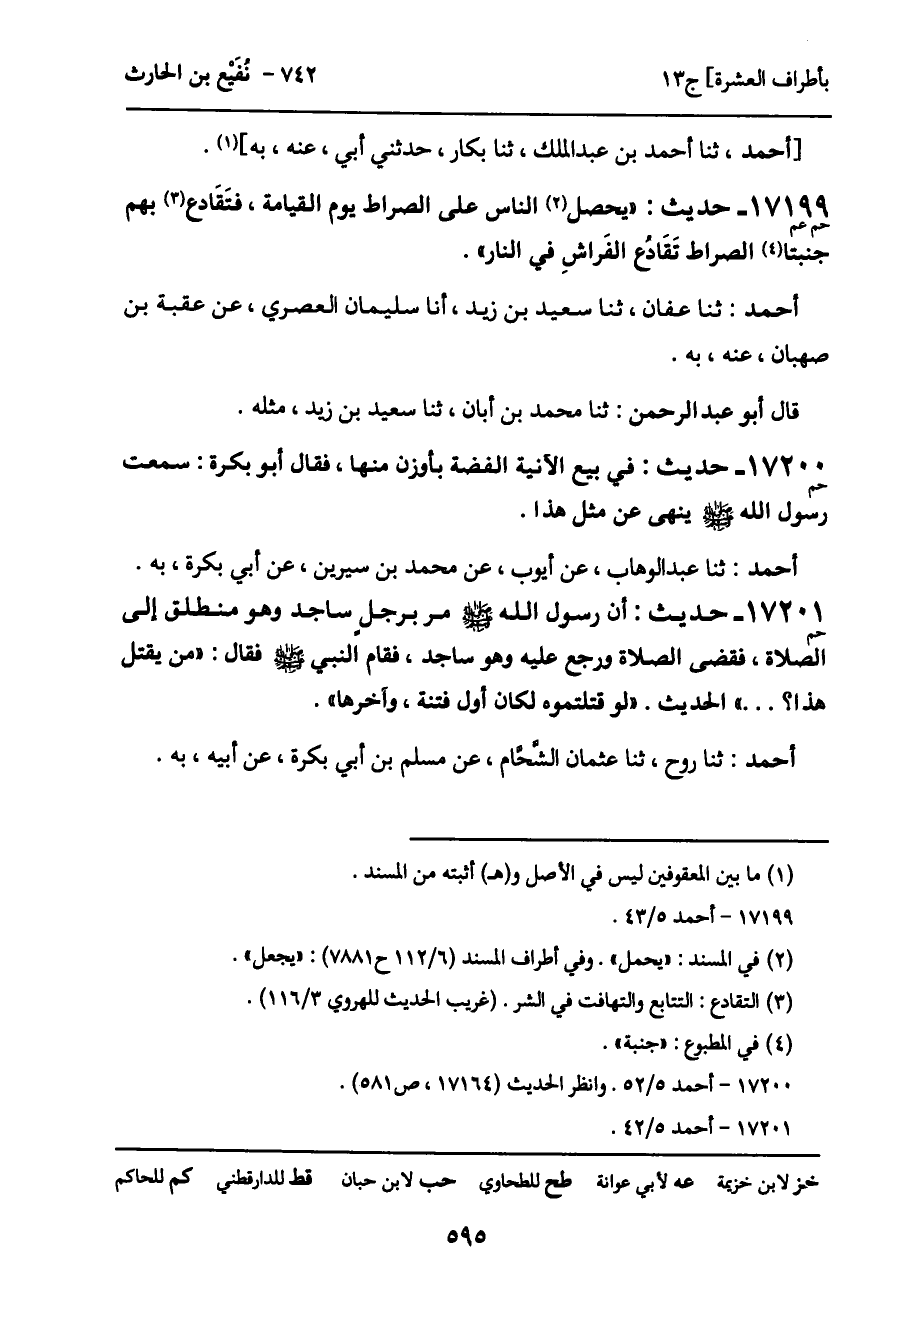 بأطراف العشرة] ج١٣
٧٤٢ - نُفَيْع بن الحارث
[أحمد ، ثنا أحمد بن عبدالملك ، ثنا بكار ، حدثني أبي ، عنه ، به](١) .
١٧١٩٩ـ حديث : «يحصل(٢) الناس على الصراط يوم القيامة ، فتَقَادع(٣) بهم
حم عم
جنبتا(٤) الصراط تَقَادُع الفَراشِ في النار» .
أحمد : ثنا عفان ، ثنا سعيد بن زيد ، أنا سليمان العصري ، عن عقبة بن
صهبان ، عنه ، به .
قال أبو عبدالرحمن : ثنا محمد بن أبان ، ثنا سعيد بن زيد ، مثله .
١٧٢٠٠ـ حديث : في بيع الآنية الفضة بأوزن منها ، فقال أبو بكرة : سمعت
حم
رسول الله ﷺ ينهى عن مثل هذا .
أحمد : ثنا عبدالوهاب ، عن أيوب ، عن محمد بن سيرين ، عن أبي بكرة ، به .
١٧٢٠١ـ حديث : أن رسول الله ﷺ مر برجلٍ ساجد وهو منطلق إلى
حم
الصلاة ، فقضى الصلاة ورجع عليه وهو ساجد ، فقام النبي ﷺ فقال : «من يقتل
هذا؟ . . .» الحديث . «لو قتلتموه لكان أول فتنة ، وآخرها» .
أحمد : ثنا روح ، ثنا عثمان الشَّحَّام ، عن مسلم بن أبي بكرة ، عن أبيه ، به .
(١) ما بين المعقوفين ليس في الأصل و(هـ) أثبته من المسند .
١٧١٩٩ - أحمد ٤٣/٥ .
(٢) في المسند : «يحمل» . وفي أطراف المسند (١١٢/٦ ح٧٨٨١) : «يجعل» .
(٣) التقادع : التتابع والتهافت في الشر . (غريب الحديث للهروي ١١٦/٣) .
(٤) في المطبوع : «جنبة» .
١٧٢٠٠ - أحمد ٥٢/٥ . وانظر الحديث (١٧١٦٤ ، ص٥٨١) .
١٧٢٠١ - أحمد ٤٢/٥ .
خز لابن خزيمة عه لأبي عوانة طح للطحاوي حب لابن حبان قط للدارقطني كم للحاكم
٥٩٥